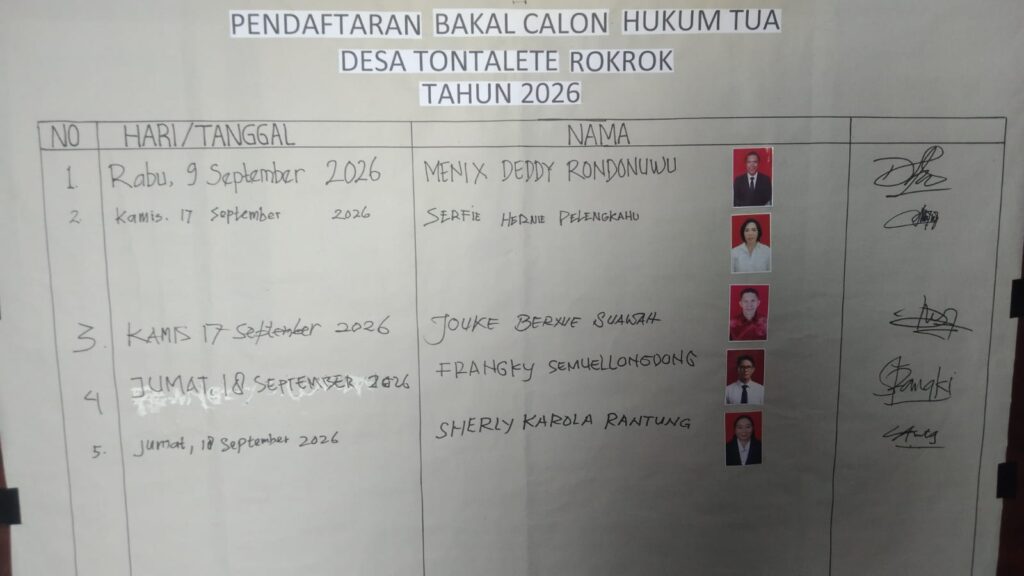 PENDAFTARAN BAKAL CALON HUKUM TUA
DESA TONTALETE ROKROK
TAHUN 2026
NO HARI/TANGGAL NAMA
1. Rabu, 9 September 2026 MENIX DEDDY RONDONUWU
2. Kamis. 17 September 2026 SERFIE HERNIE PELENGKAHU
3. KAMIS 17 September 2026 JOUKE SUAWAH
4 JUMAT, 18 SEPTEMBER 2026 FRANGKY SEMUELLONGDONG
5. Jumat, 18 September 2026 SHERLY KAROLA RANTUNG